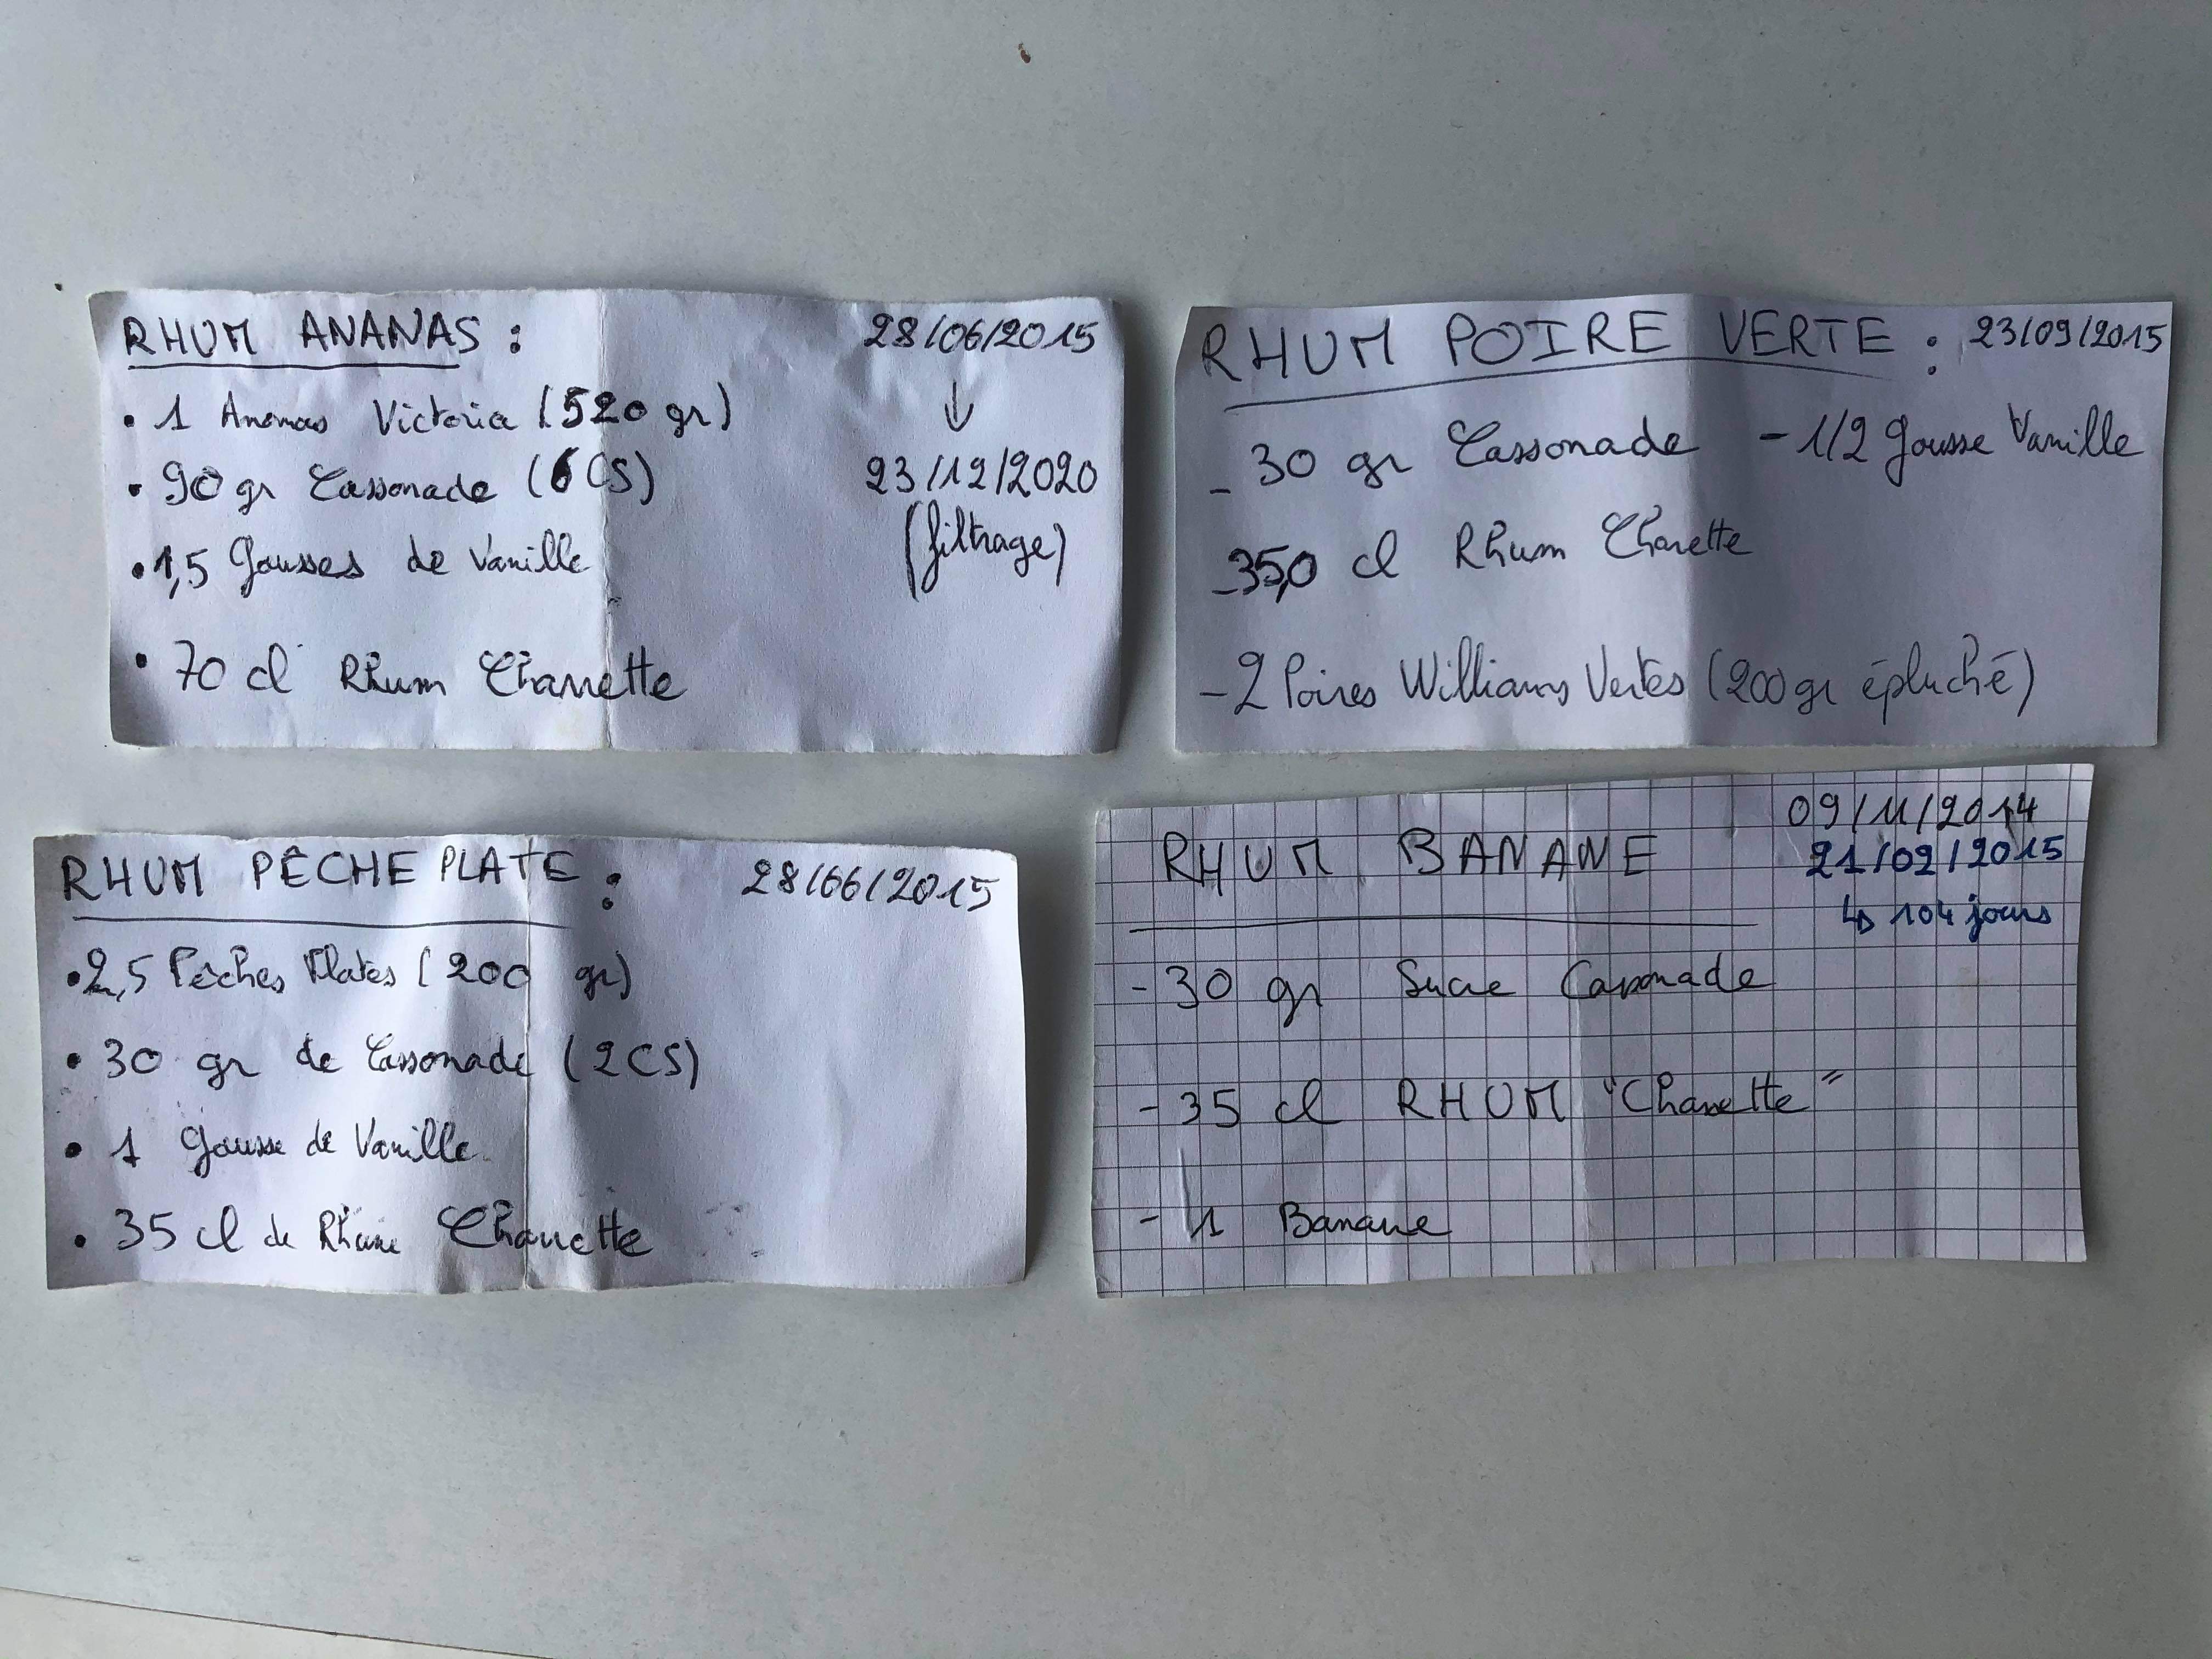 RHUM ANANAS : 28/06/2015
• 1 Ananas Victoria (520 gr) ↓
• 90 gr Cassonade (6 CS) 23/12/2020
(filtrage)
• 1,5 Gousses de Vanille
• 70 cl Rhum Charrette
RHUM POIRE VERTE : 23/09/2015
- 30 gr Cassonade - 1/2 gousse Vanille
- 35,0 cl Rhum Charette
- 2 Poires Williams Vertes (200 gr épluché)
RHUM PÊCHE PLATE : 28/06/2015
• 2,5 Pêches Plates (200 gr)
• 30 gr de Cassonade (2 CS)
• 1 Gousse de Vanille
• 35 cl de Rhum Charrette
09/11/2014
RHUM BANANE 21/02/2015
↳ 104 jours
- 30 gr Sucre Cassonade
- 35 cl RHUM "Charrette"
- 1 Banane